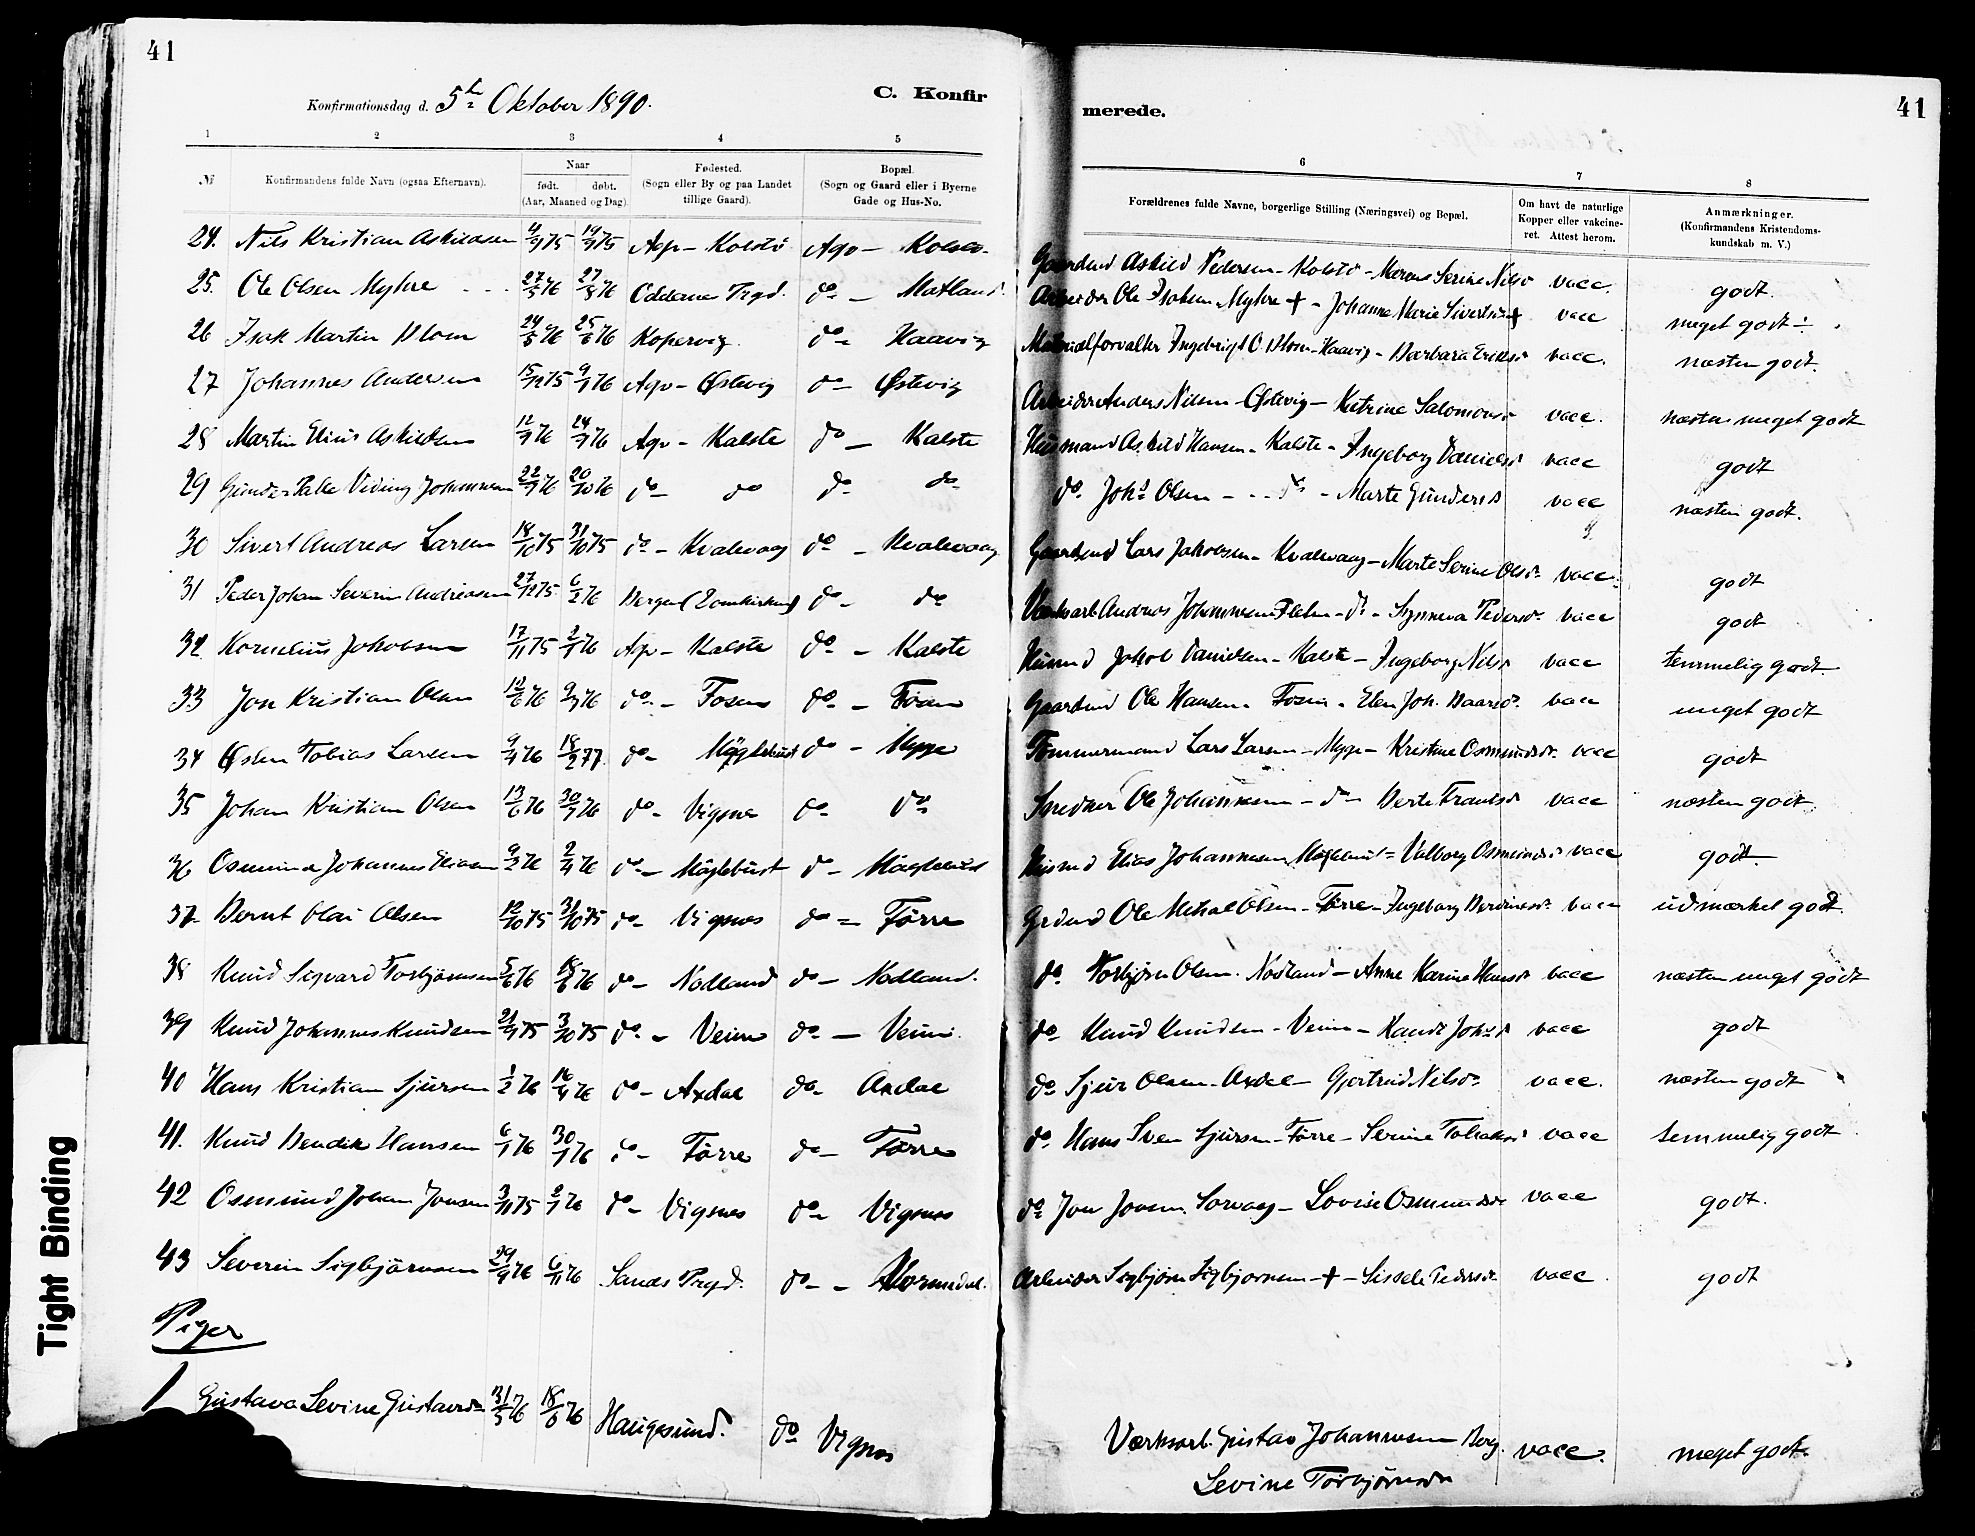 41
Konfirmationsdag d. 5te Oktober 1890.
C. Konfir
1 2 3 4 5
№ Konfirmandens fulde Navn (ogsaa Efternavn). Naar født. døbt. (Aar, Maaned og Dag). Fødested. (Sogn eller By og paa Landet tillige Gaard). Bopæl. (Sogn og Gaard eller i Byerne Gade og Hus-No.
merede. 41
6 7 8
Forældrenes fulde Navne, borgerlige Stilling (Næringsvei) og Bopæl. Om havt de naturlige Kopper eller vakcineret. Attest herom. Anmærkninger. (Konfirmandens Kristendomskundskab m. V.)
24. Nils Kristian Askildsen 4/9 75 19/9 75 Agv - Kolstö Agv - Kolstö Gaardmd Askild Pedersen - Kolstö - Marens Serine Nilsd vacc. godt.
25. Ole Olsen Myhre 27/5 76 27/8 76 Oddernes Prgd. do - Matland Arbeider Ole Isaksen Myhre + - Johanne Marie Sivertsd + vacc meget godt ÷
26 Isak Martin Blom 24/5 76 25/6 76 Kopervig do - Haavig Materialforvalter Ingebrigt O. Blom - Haavig - Barbara Eriksd vacc. næsten godt.
27 Johannes Andersen 15/12 75 9/1 76 Agv - Østevig do - Østevig Arbeider Anders Nilsen - Østevig - Katrine Salomonsd vacc. næsten meget godt
28 Martin Elius Askildsen 12/9 76 24/9 76 Agv - Kalstö do - Kalstö Husmand Askild Hansen - Kalstö - Ingeborg Danielsd vacc godt
29 Gunder Palle Viding Johannesen 22/9 76 20/10 76 do - do do - do do Johs Olsen - do - Marte Gundersd vacc næsten godt.
30 Sivert Andreas Larsen 18/10 75 31/10 75 do - Kvalevaag do - Kvalevaag Gaardmd Lars Jakobsen - Kvalevaag - Marte Serine Olsd vacc. godt
31 Peder Johan Severin Andreasen 27/12 75 6/2 76 Bergen (Domkirken) do - do Værksarb Andreas Johannesen - do - Synneva Pedersd vacc godt
32 Kornelius Jakobsen 17/11 75 2/1 76 Agv - Kalstö do - Kalstö Husmd Jakob Danielsen - Kalstö - Ingeborg Nilsd vacc temmelig godt.
33 Jon Kristian Olsen 12/6 76 9/7 76 do - Fosen do - Fosen Gaardmd Ole Hansen - Fosen - Elen Joh. Baardsd vacc meget godt
34 Østen Tobias Larsen 9/4 76 18/2 77 do - Mögleb­ust do - Mygge Tømmermand Lars Larsen - Mygge - Kristine Osmundsd vacc godt
35 Johan Kristian Olsen 13/6 76 30/7 76 do - Vigsnes do do Snedker Ole Johannesen - do - Berte Frantsd vacc næsten godt
36 Osmund Johannes Eliasen 9/2 76 2/4 76 do - Möglebust do - Möglebust Husmd Elias Johannesen Möglebust - Valborg Osmundsd vacc godt.
37 Bernt Olai Olsen 12/10 75 31/10 75 do - Vigsnes do - Tørre Grdmd Ole Mikal Olsen - Tørre - Ingeborg Berdinesd vacc udmærket godt.
38 Knud Sigvard Torbjørnsen 5/6 76 18/6 76 do - Nodland do - Nodland. do Torbjørn Olsen. Nodland - Anne Karine Hansd vacc næsten meget godt
39 Knud Johannes Knudsen 21/9 75 3/10 75 do - Veim do - Veim. do Knud Knudsen - Veim - Randi Johsd vacc godt
40 Hans Kristian Sjursen 1/2 76 16/4 76 do - Axdal do Axdal do Sjur Olsen - Axdal - Gjertrud Nilsd vacc. næsten godt
41. Knud Bendik Hansen 6/1 76 30/1 76 do - Tørre do - Tørre do Hans Sven Sjursen - Tørre - Serine Tobiasd vacc temmelig godt
42 Osmund Johan Jonsen 3/11 75 2/1 76 do - Vigsnes do - Vigsnes do Jon Jonsen Sorvaag - Lovise Osmundsd vacc godt.
43 Severin Sigbjørnsen 29/9 76 6/11 76 Sands Prgd. do - Vormedal. Arbeider Sigbjørn Sigbjørnsen - + - Sissele Pedersd vacc. godt
Piger
1 Gustava Levine Gustavsd 31/5 76 18/6 76 Haugesund. do Vigsnes Værksarb. Gustav Johannesen Berg. vacc. meget godt.
Levine Torbjørnsd
Tight Binding